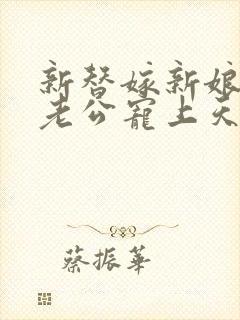 新替嫁新娘
老公宠上天
蔡振華